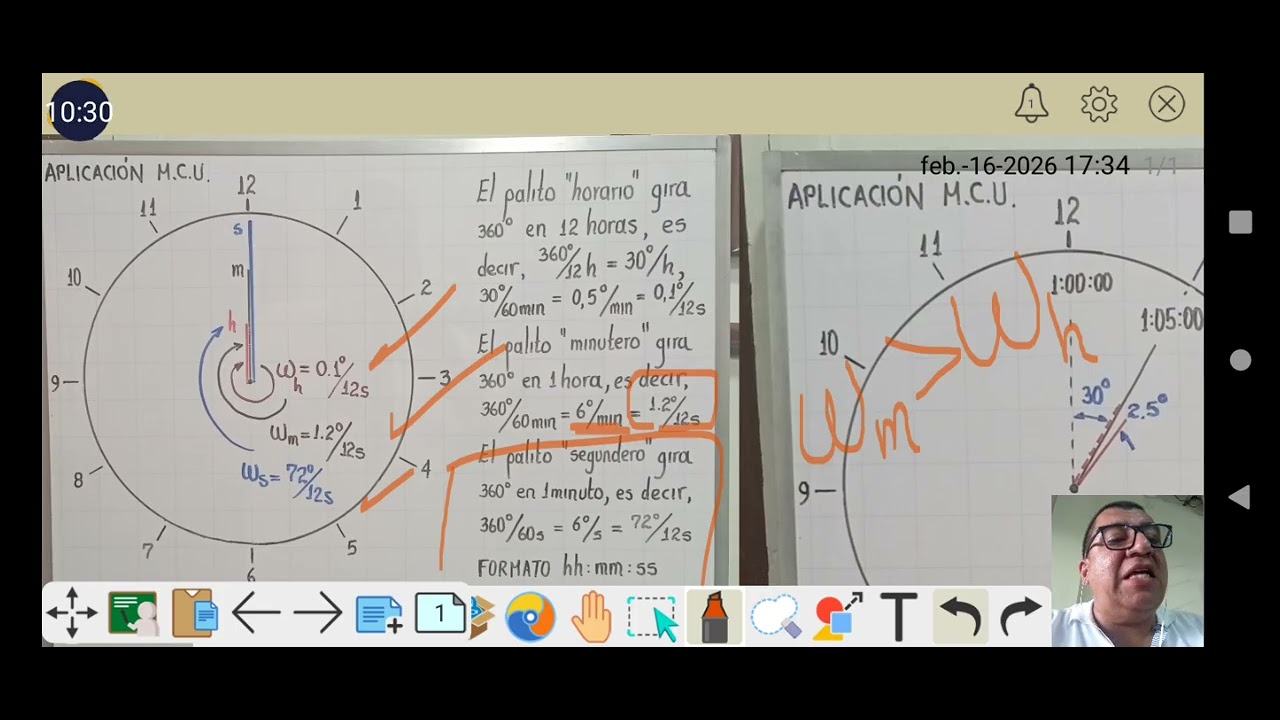 10:30
1
feb.-16-2026 17:34 1/1
APLICACIÓN M.C.U.
12
11
1
10
2
9
3
8
4
7
5
6
s
m
h
ωh = 0.1°/12s
ωm = 1.2°/12s
ωs = 72°/12s
El palito "horario" gira
360° en 12 horas, es
decir, 360°/12h = 30°/h,
30°/60min = 0,5°/min = 0,1°/12s
El palito "minutero" gira
360° en 1 hora, es decir,
360°/60min = 6°/min = 1.2°/12s
El palito "segundero" gira
360° en 1minuto, es decir,
360°/60s = 6°/s = 72°/12s
FORMATO hh:mm:ss
APLICACIÓN M.C.U.
12
11
1:00:00
1:05:00
10
30°
2.5°
9
ωm > ωh
1
T